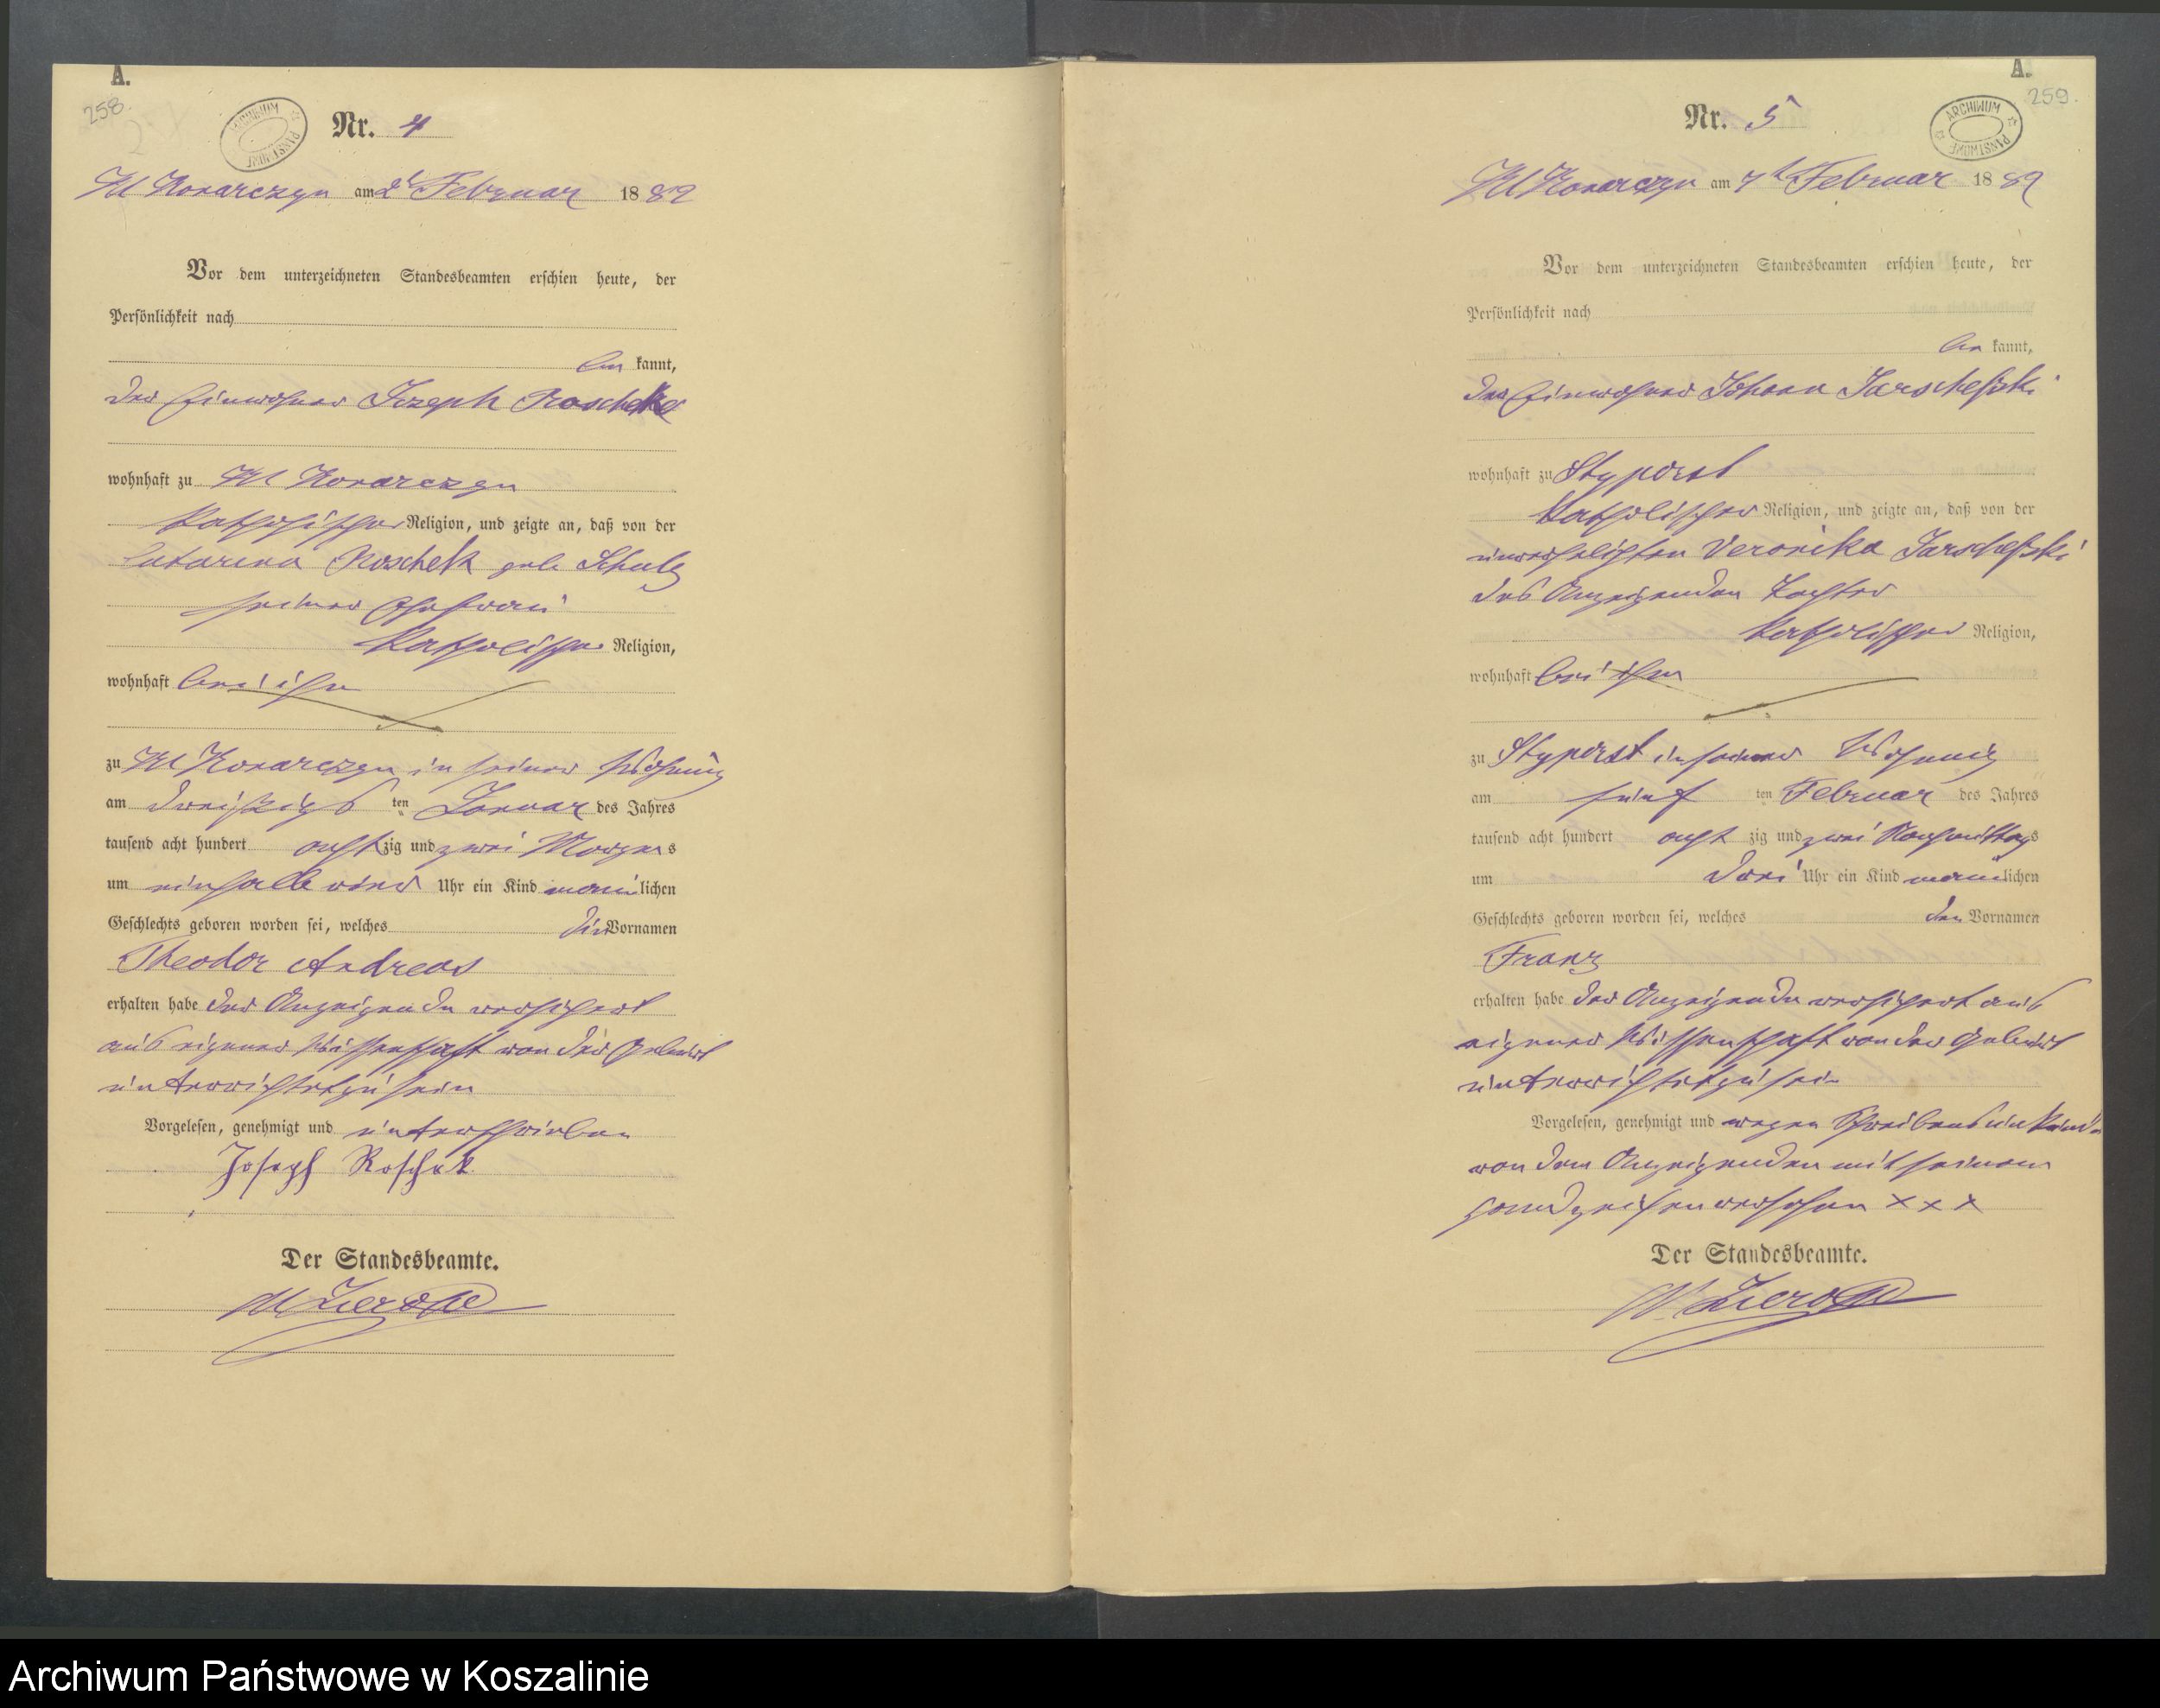 A.
258.
ARCHIWUM PAŃSTWOWE
Nr. 4
Kl Konarczyn am 2t Februar 1882
Vor dem unterzeichneten Standesbeamten erschien heute, der
Persönlichkeit nach
be kannt,
der Einwohner Joseph Roschek
wohnhaft zu Kl Konarczyn
katholischer Religion, und zeigte an, daß von der
Catarina Roschek geb. Schulz
seiner Ehefrau
katholischer Religion,
wohnhaft bei ihm
zu Kl Konarczyn in seiner Wohnung
am dreißigs ten Januar des Jahres
tausend acht hundert acht zig und zwei Morgens
um einhalb vier Uhr ein Kind männlichen
Geschlechts geboren worden sei, welches die Vornamen
Theodor Andreas
erhalten habe der Anzeigende versichert
aus eigener Wissenschaft von der Geburt
unterrichtet zu sein
Vorgelesen, genehmigt und unterschrieben
Joseph Roschek
Der Standesbeamte.
A.
259.
ARCHIWUM PAŃSTWOWE
Nr. 5
Kl Konarczyn am 7t Februar 1882
Vor dem unterzeichneten Standesbeamten erschien heute, der
Persönlichkeit nach
be kannt,
der Einwohner Johann Jarscheßki
wohnhaft zu Styporst
katholischer Religion, und zeigte an, daß von der
unverehelichten Veronika Jarscheßki
des Anzeigenden Tochter
katholischer Religion,
wohnhaft bei ihm
zu Styporst in seiner Wohnung
am fünf ten Februar des Jahres
tausend acht hundert acht zig und zwei Nachmittags
um drei Uhr ein Kind männlichen
Geschlechts geboren worden sei, welches den Vornamen
Franz
erhalten habe der Anzeigende versichert aus
eigener Wissenschaft von der Geburt
unterrichtet zu sein
Vorgelesen, genehmigt und wegen Schreibensunkunde
von dem Anzeigenden mit seinem
Handzeichen versehen x x x
Der Standesbeamte.
Archiwum Państwowe w Koszalinie